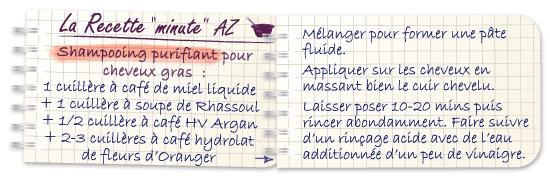 La Recette "minute" AZ
Shampooing purifiant pour
cheveux gras :
1 cuillère à café de miel liquide
+ 1 cuillère à soupe de Rhassoul
+ 1/2 cuillère à café HV Argan
+ 2-3 cuillères à café hydrolat
de fleurs d'Oranger
Mélanger pour former une pâte
fluide.
Appliquer sur les cheveux en
massant bien le cuir chevelu.
Laisser poser 10-20 mins puis
rincer abondamment. Faire suivre
d'un rinçage acide avec de l'eau
additionnée d'un peu de vinaigre.